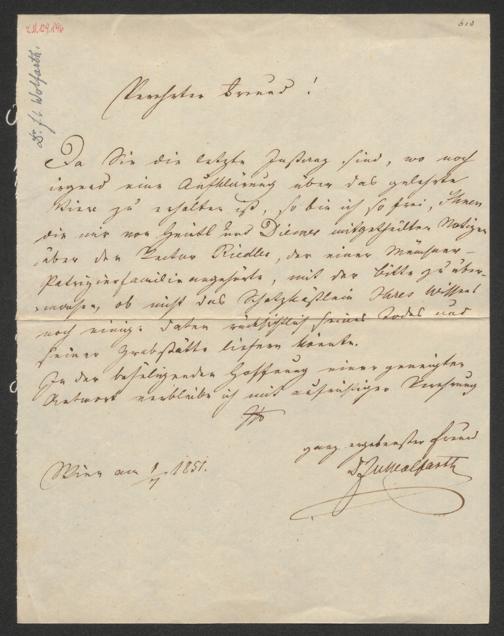 Dr. Fl. Wolfarth.
Verehrter Freund!
Da Sie die letzte Instanz sind, wo noch
irgend eine Aufklärung über das gelehrte
Wien zu erhalten ist, so bin ich so frei, Ihnen
die mir von und mitgetheilten Notizen
über den Rector Riedler, der einer
Patrizierfamilie angehörte, mit der Bitte zu über-
machen, ob nicht das Schatzkästlein Ihres Wissens
noch einige Daten rücksichtlich seines Todes und
seiner Grabstätte liefern könnte.
In der beseligenden Hoffnung einer geneigten
Antwort verbleibe ich mit aufrichtiger Verehrung
ganz ergebenster Freund
Wien am 1851.